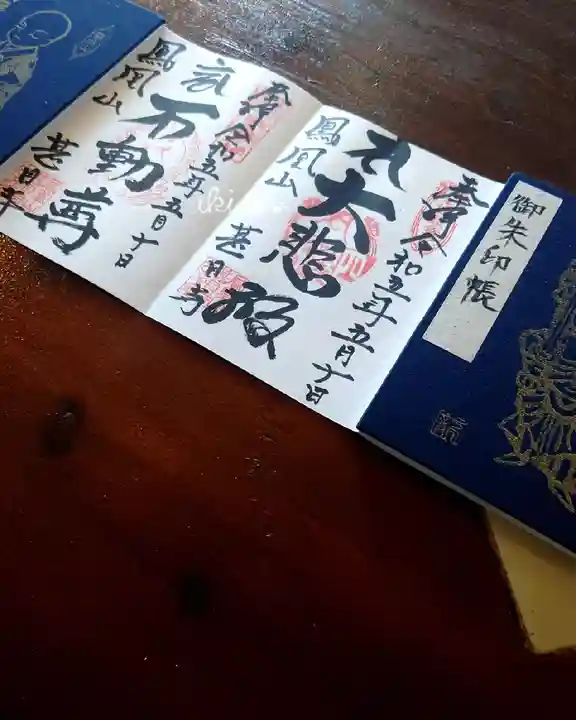 奉拝
令和五年五月十日
大悲殿
鳳凰山
甚目寺
奉拝
令和五年五月十日
不動尊
鳳凰山
甚目寺
御朱印帳